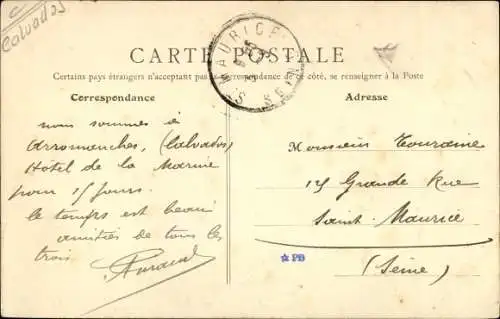 Calvados
CARTE POSTALE
Certains pays étrangers n'acceptant pas la correspondance de ce côté, se renseigner à la Poste
Correspondance
Adresse
ST MAURICE
SEINE
nous sommes à
Arromanches, (Calvados)
Hôtel de la Marine
pour 15 jours.
le temps est beau
amitiés de tous les
trois
Monsieur Touraine
Grande Rue
Saint-Maurice
(Seine)
PB